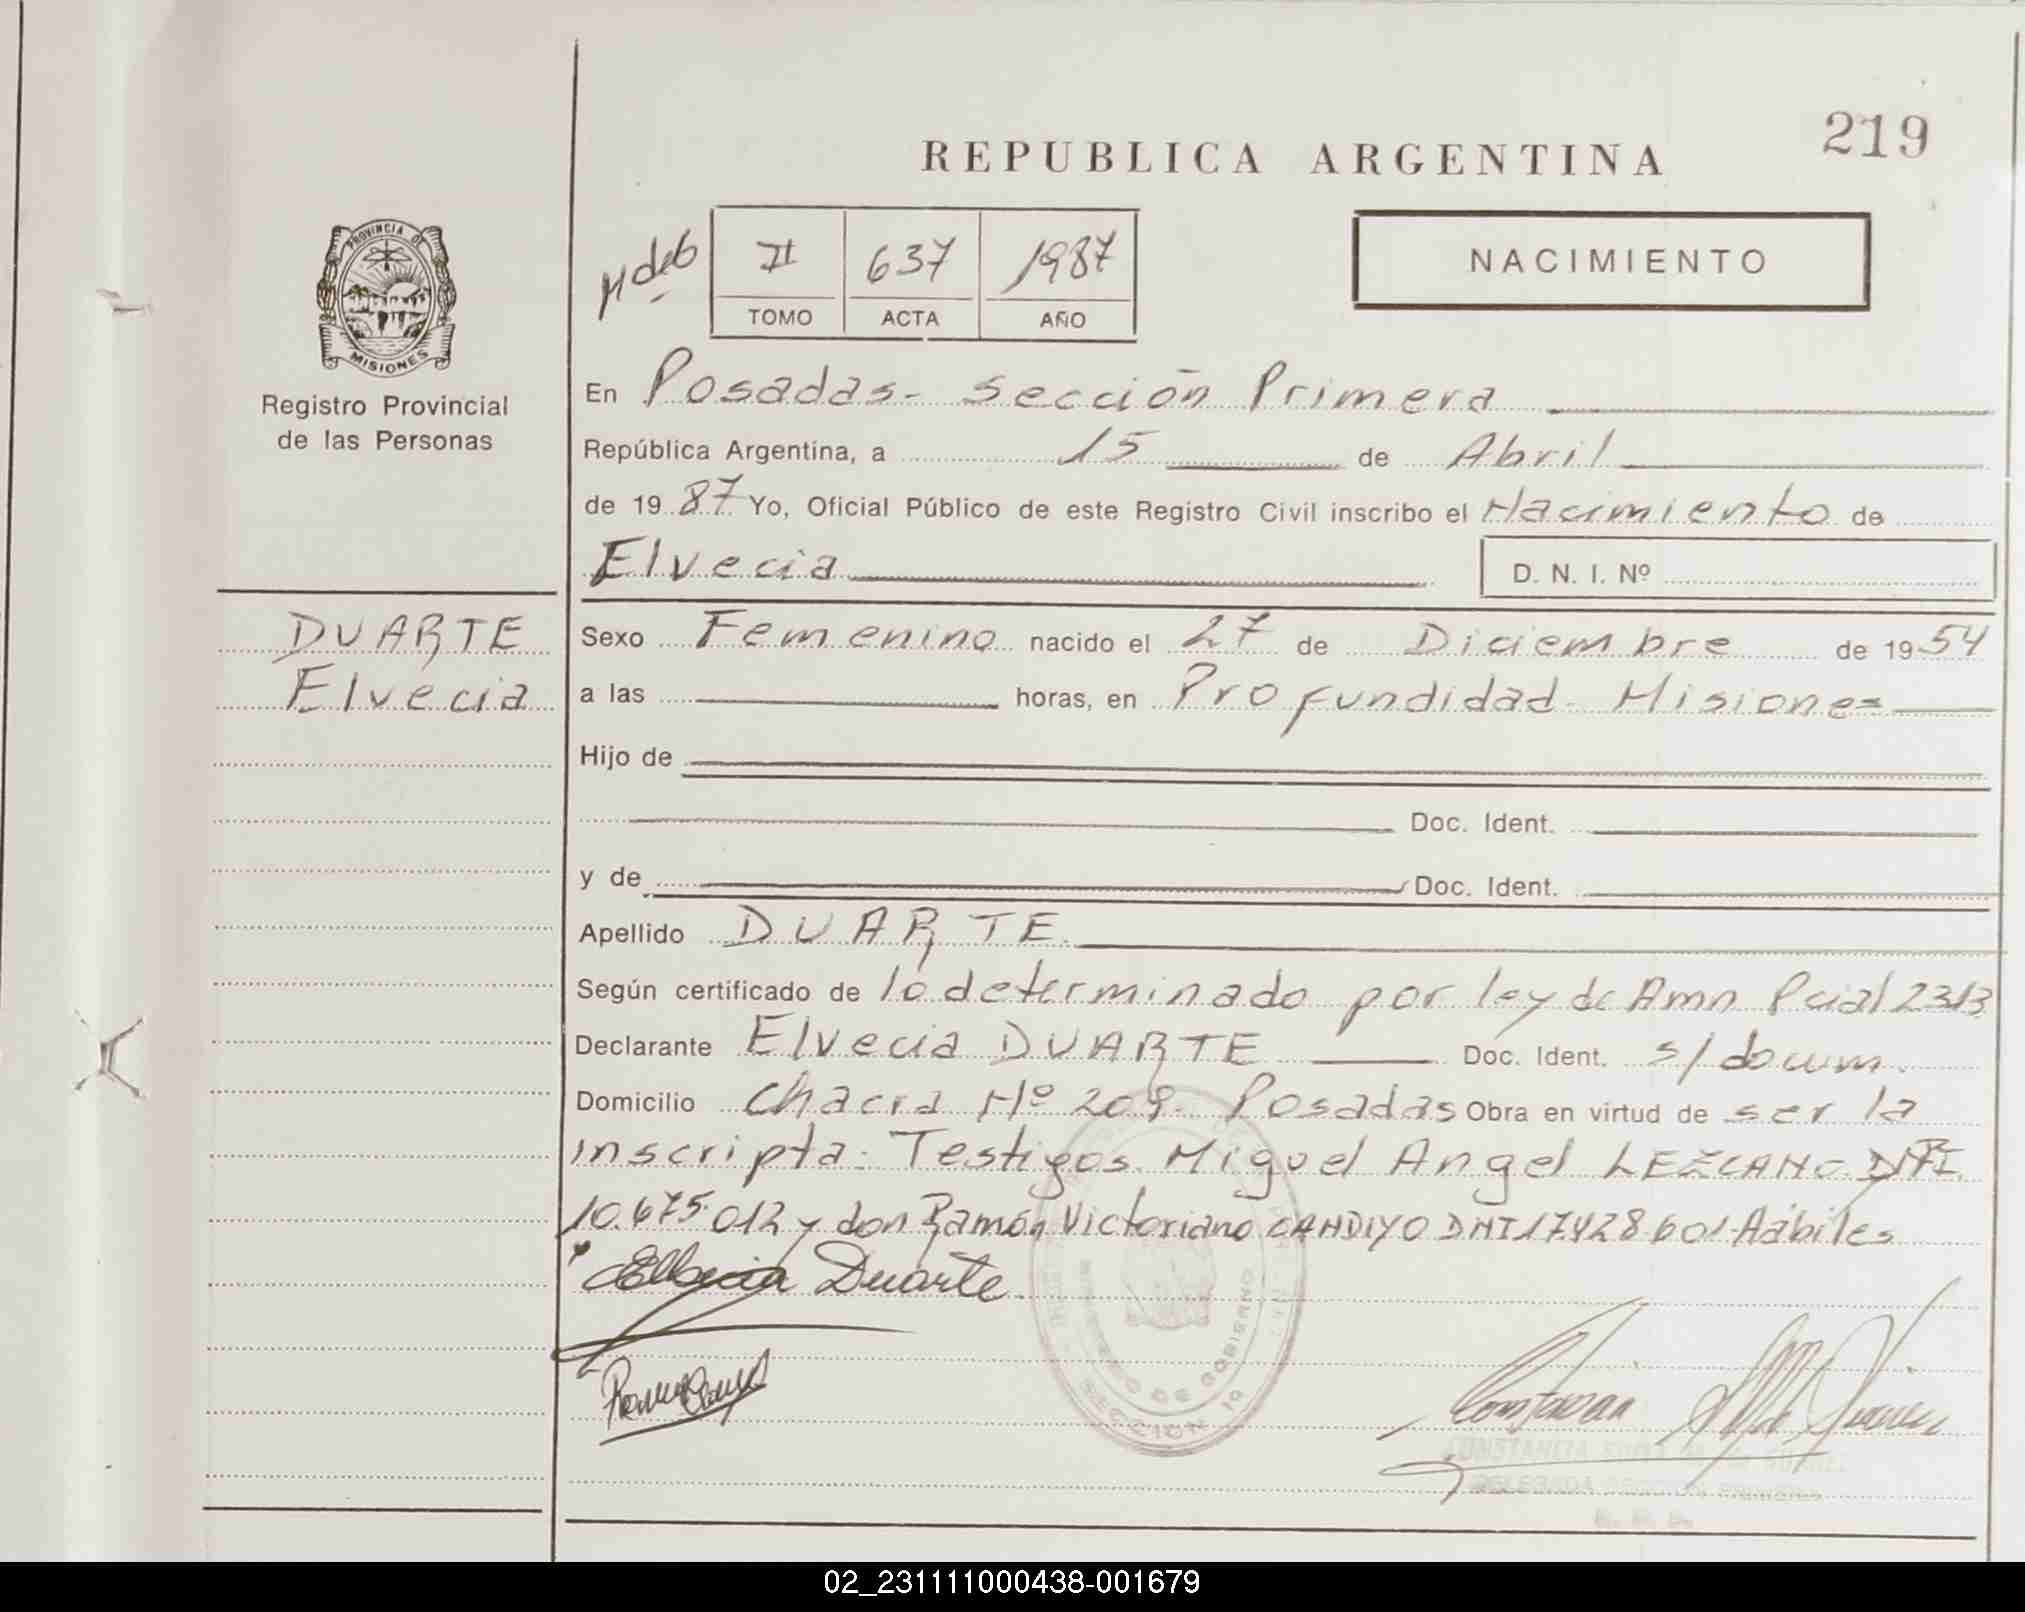 219
REPUBLICA ARGENTINA
II 637 1987
TOMO ACTA AÑO
NACIMIENTO
PROVINCIA DE
MISIONES
Registro Provincial
de las Personas
DUARTE
Elvecia
En Posadas- Sección Primera
República Argentina, a 15 de Abril
de 1987 Yo, Oficial Público de este Registro Civil inscribo el Nacimiento de
Elvecia D. N. I. Nº
Sexo Femenino nacido el 27 de Diciembre de 1954
a las horas, en Profundidad- Misiones
Hijo de
Doc. Ident.
y de Doc. Ident.
Apellido DUARTE
Según certificado de lo determinado por ley de Amn Pcial 2313
Declarante Elvecia DUARTE Doc. Ident. s/docum.
Domicilio Chacra Nº 209- Posadas Obra en virtud de ser la
inscripta- Testigos Miguel Angel LEZCANO DNI
10.675.012 y don Ramón Victoriano CANDIYO DNI 17428601-Hábiles
Elbecia Duarte
DE GOBIERNO
SECCION 1º
CONSTANCIA
DELEGADA SECCION PRIMERA
02_231111000438-001679